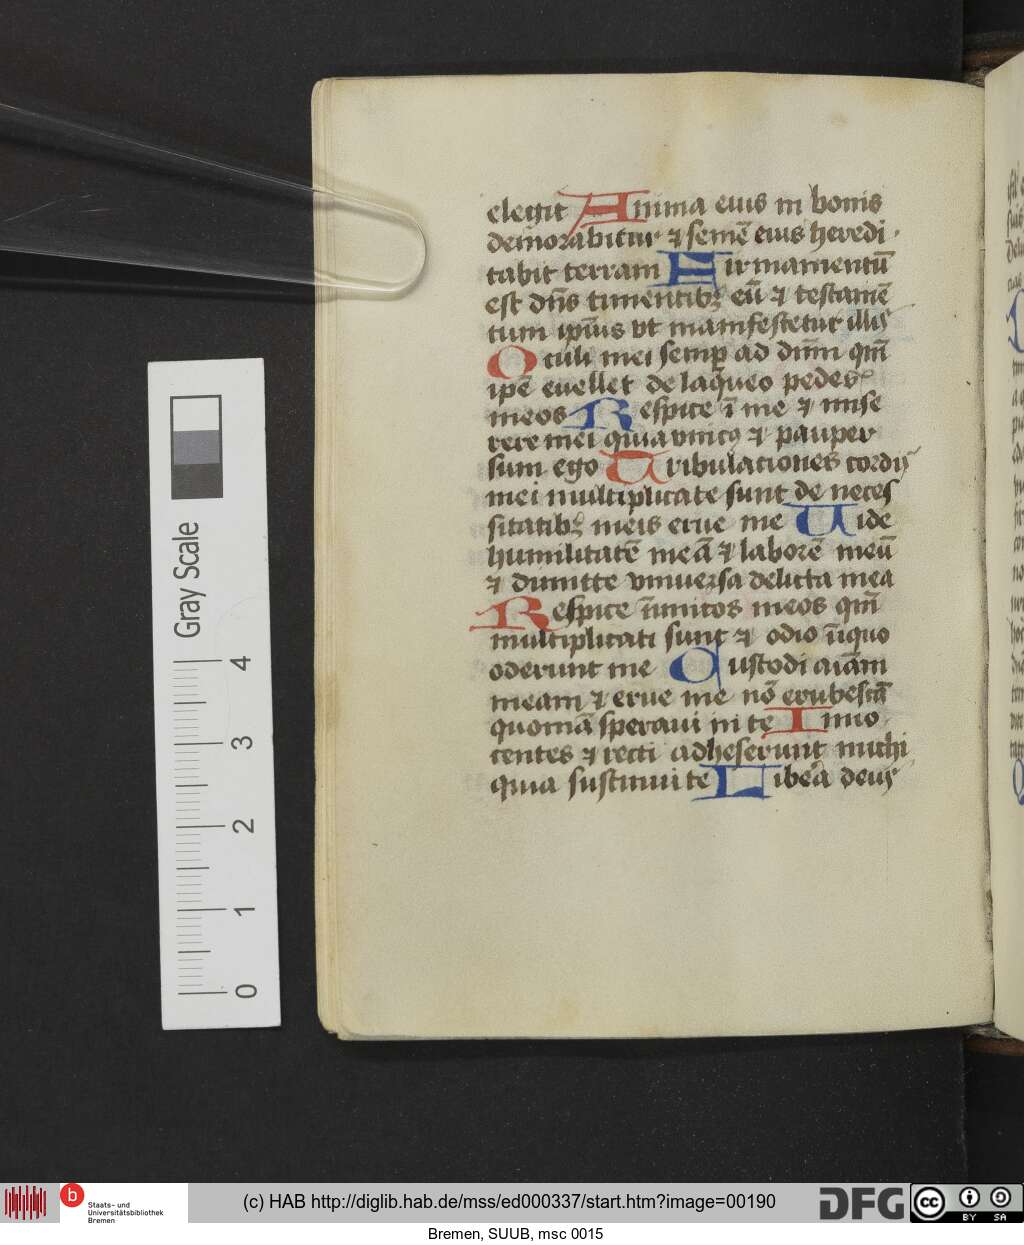 elegit Anima eius in bonis
demorabitur ⁊ semē eius heredi
tabit terram Firmamentū
est dn̄s timentibꝫ eū ⁊ testamē
tum ip̄ius vt manifestetur illis
Oculi mei semp̱ ad dn̄m qm̄
ip̄e euellet de laqueo pedes
meos Respice ī me ⁊ mise
rere mei quia vnicꝯ ⁊ pauper
sum ego Tribulationes cordis
mei multiplicate sunt de neces
sitatibꝫ meis erue me Uide
humilitatē meā ⁊ laborē meū
⁊ dimitte vniuersa delicta mea
Respice īimicos meos qm̄
multiplicati sunt ⁊ odio īiquo
oderunt me Custodi aīam
meam ⁊ erue me nō erubescā
quoniā speraui in te Inno
centes ⁊ recti adheserunt michi
quia sustinui te Libera deus
Gray Scale
4
3
2
1
0
b Staats- und
Universitätsbibliothek
Bremen
(c) HAB http://diglib.hab.de/mss/ed000337/start.htm?image=00190
DFG
cc BY SA
Bremen, SUUB, msc 0015